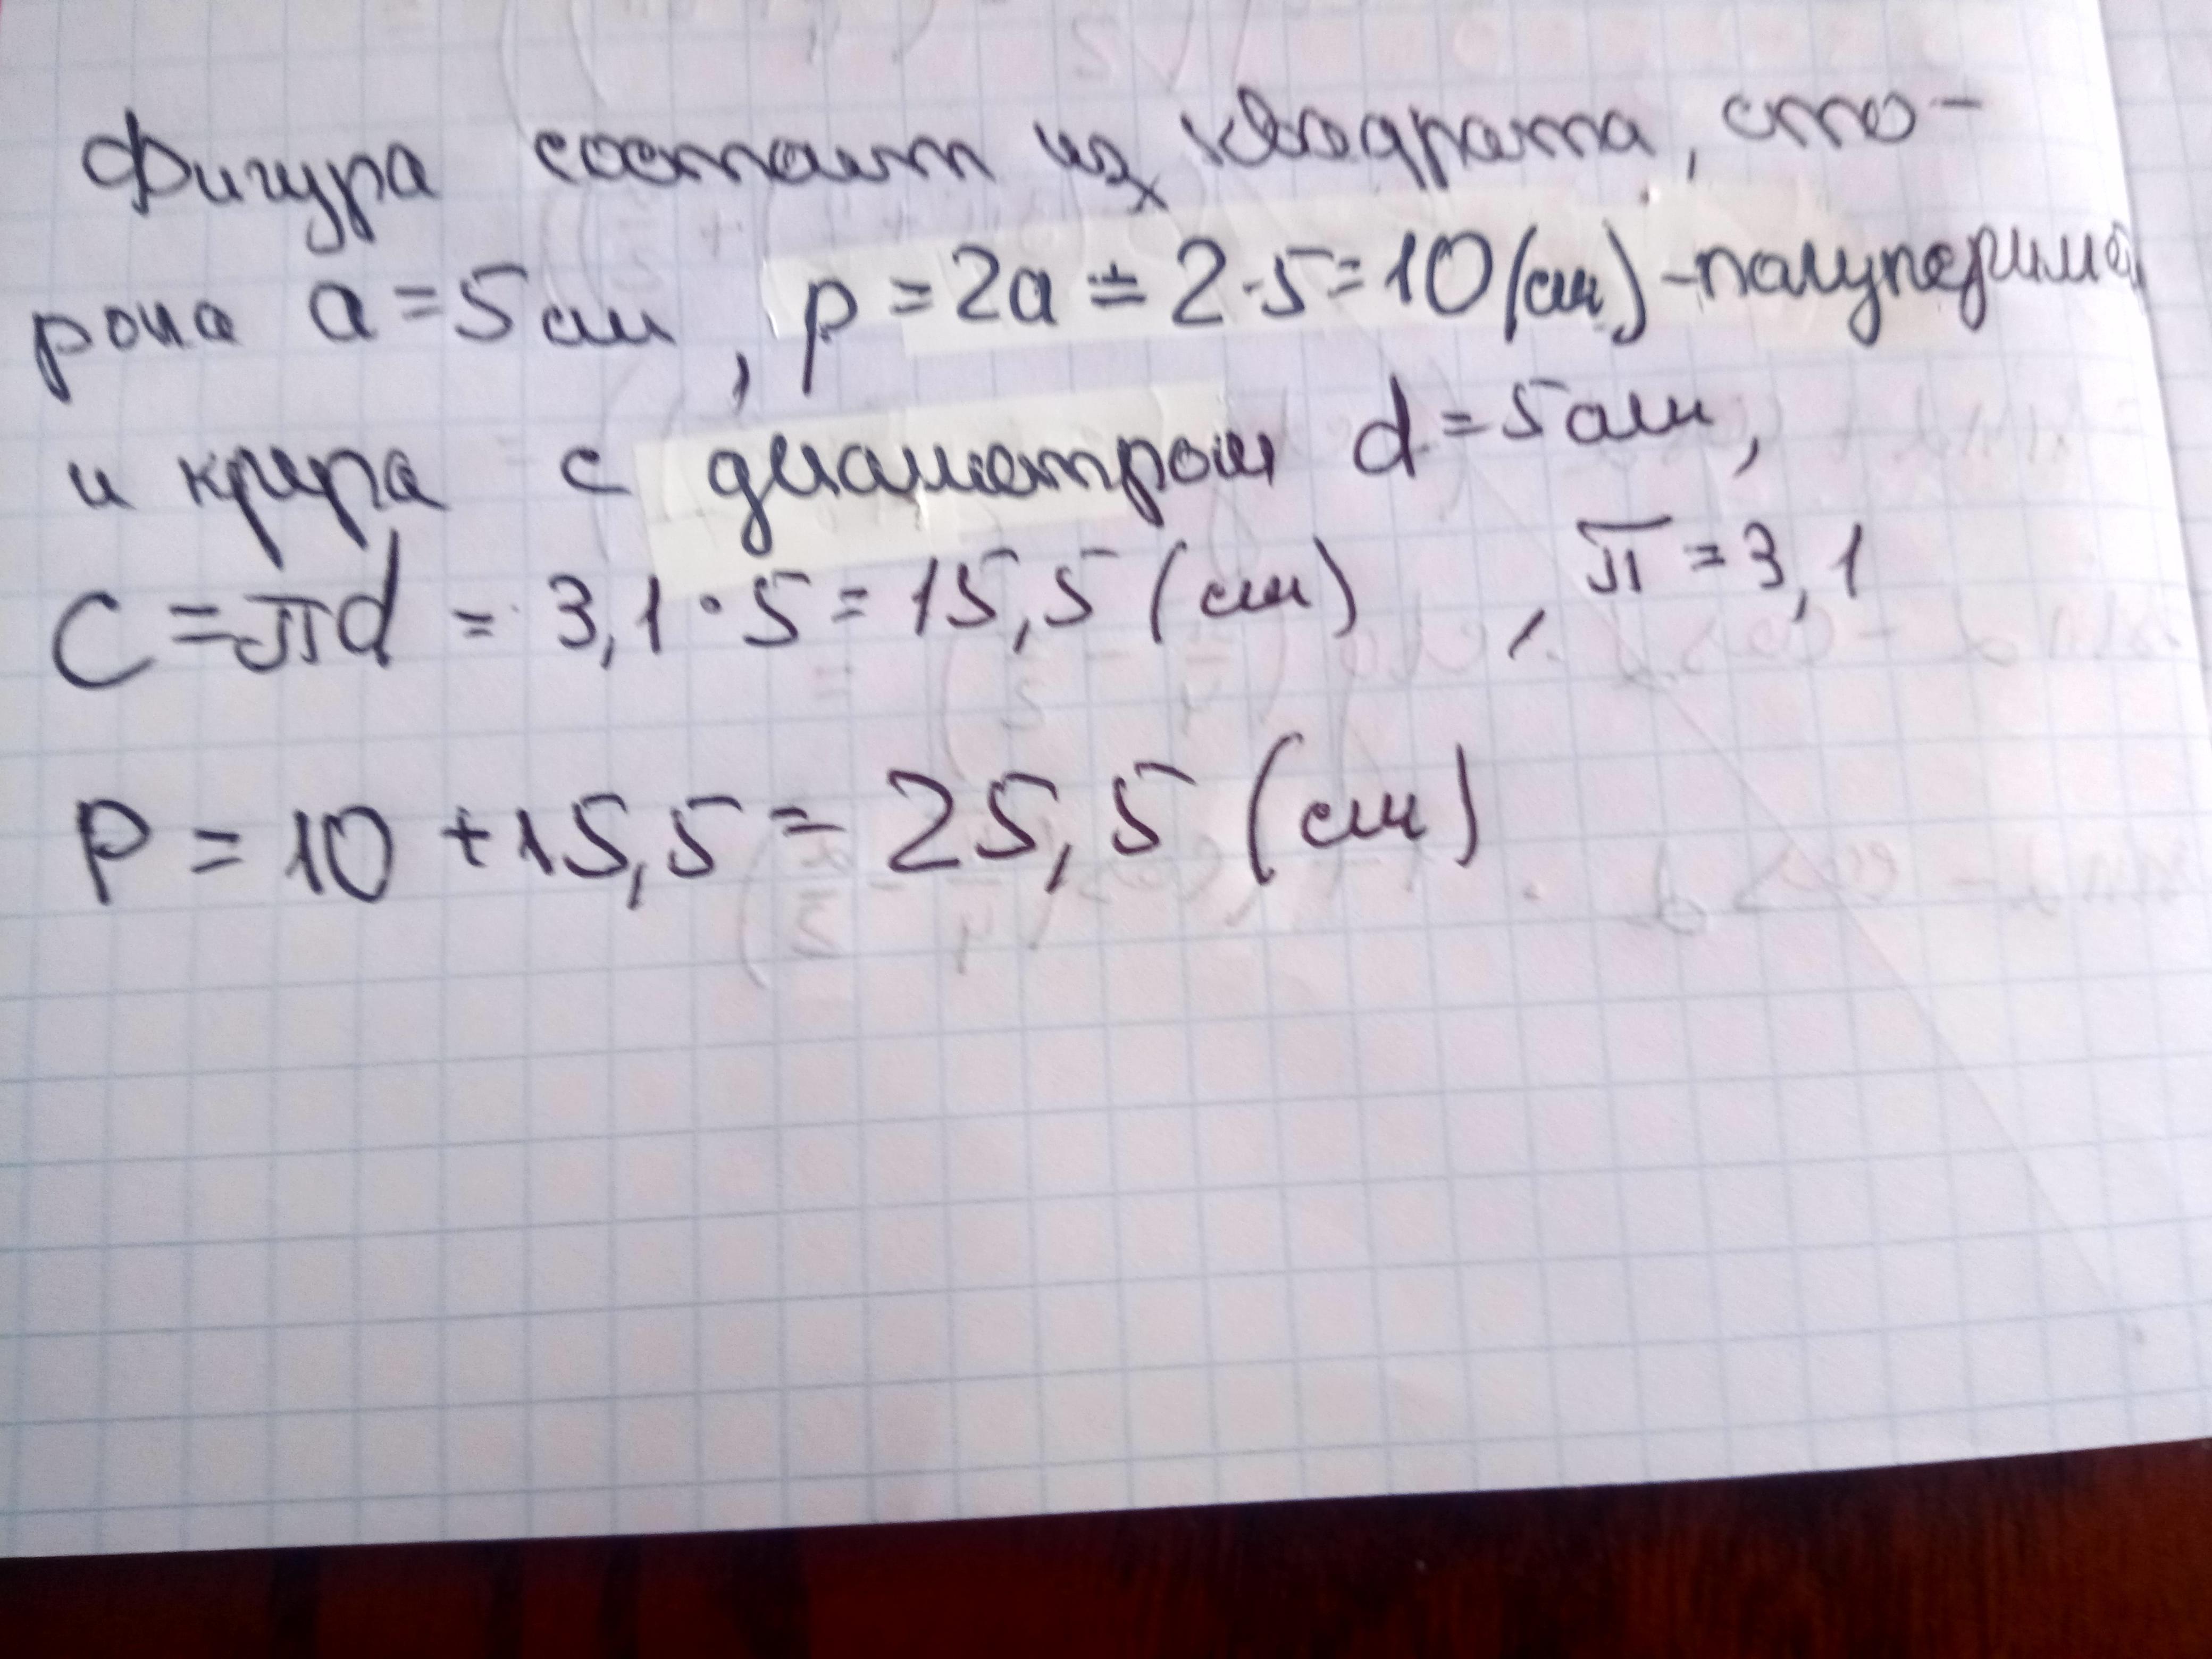 Фигура состоит из квадрата, сто-
рона a = 5 см, p = 2a = 2·5 = 10 (см) - полупериме
и круга с диаметром d = 5 см,
C = πd = 3,1 · 5 = 15,5 (см), π = 3,1
P = 10 + 15,5 = 25,5 (см)